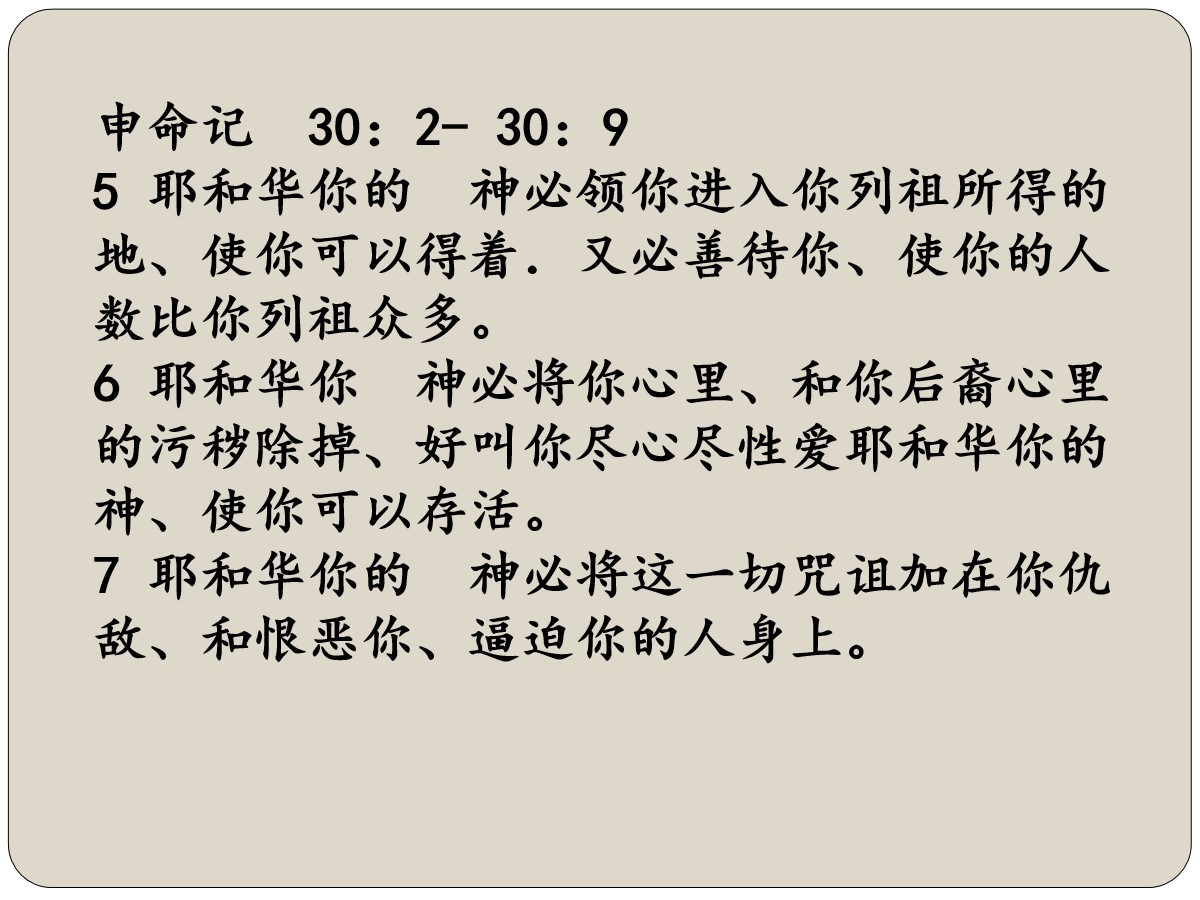 申命记　30：2- 30：9
5 耶和华你的　神必领你进入你列祖所得的
地、使你可以得着．又必善待你、使你的人
数比你列祖众多。
6 耶和华你　神必将你心里、和你后裔心里
的污秽除掉、好叫你尽心尽性爱耶和华你的
神、使你可以存活。
7 耶和华你的　神必将这一切咒诅加在你仇
敌、和恨恶你、逼迫你的人身上。